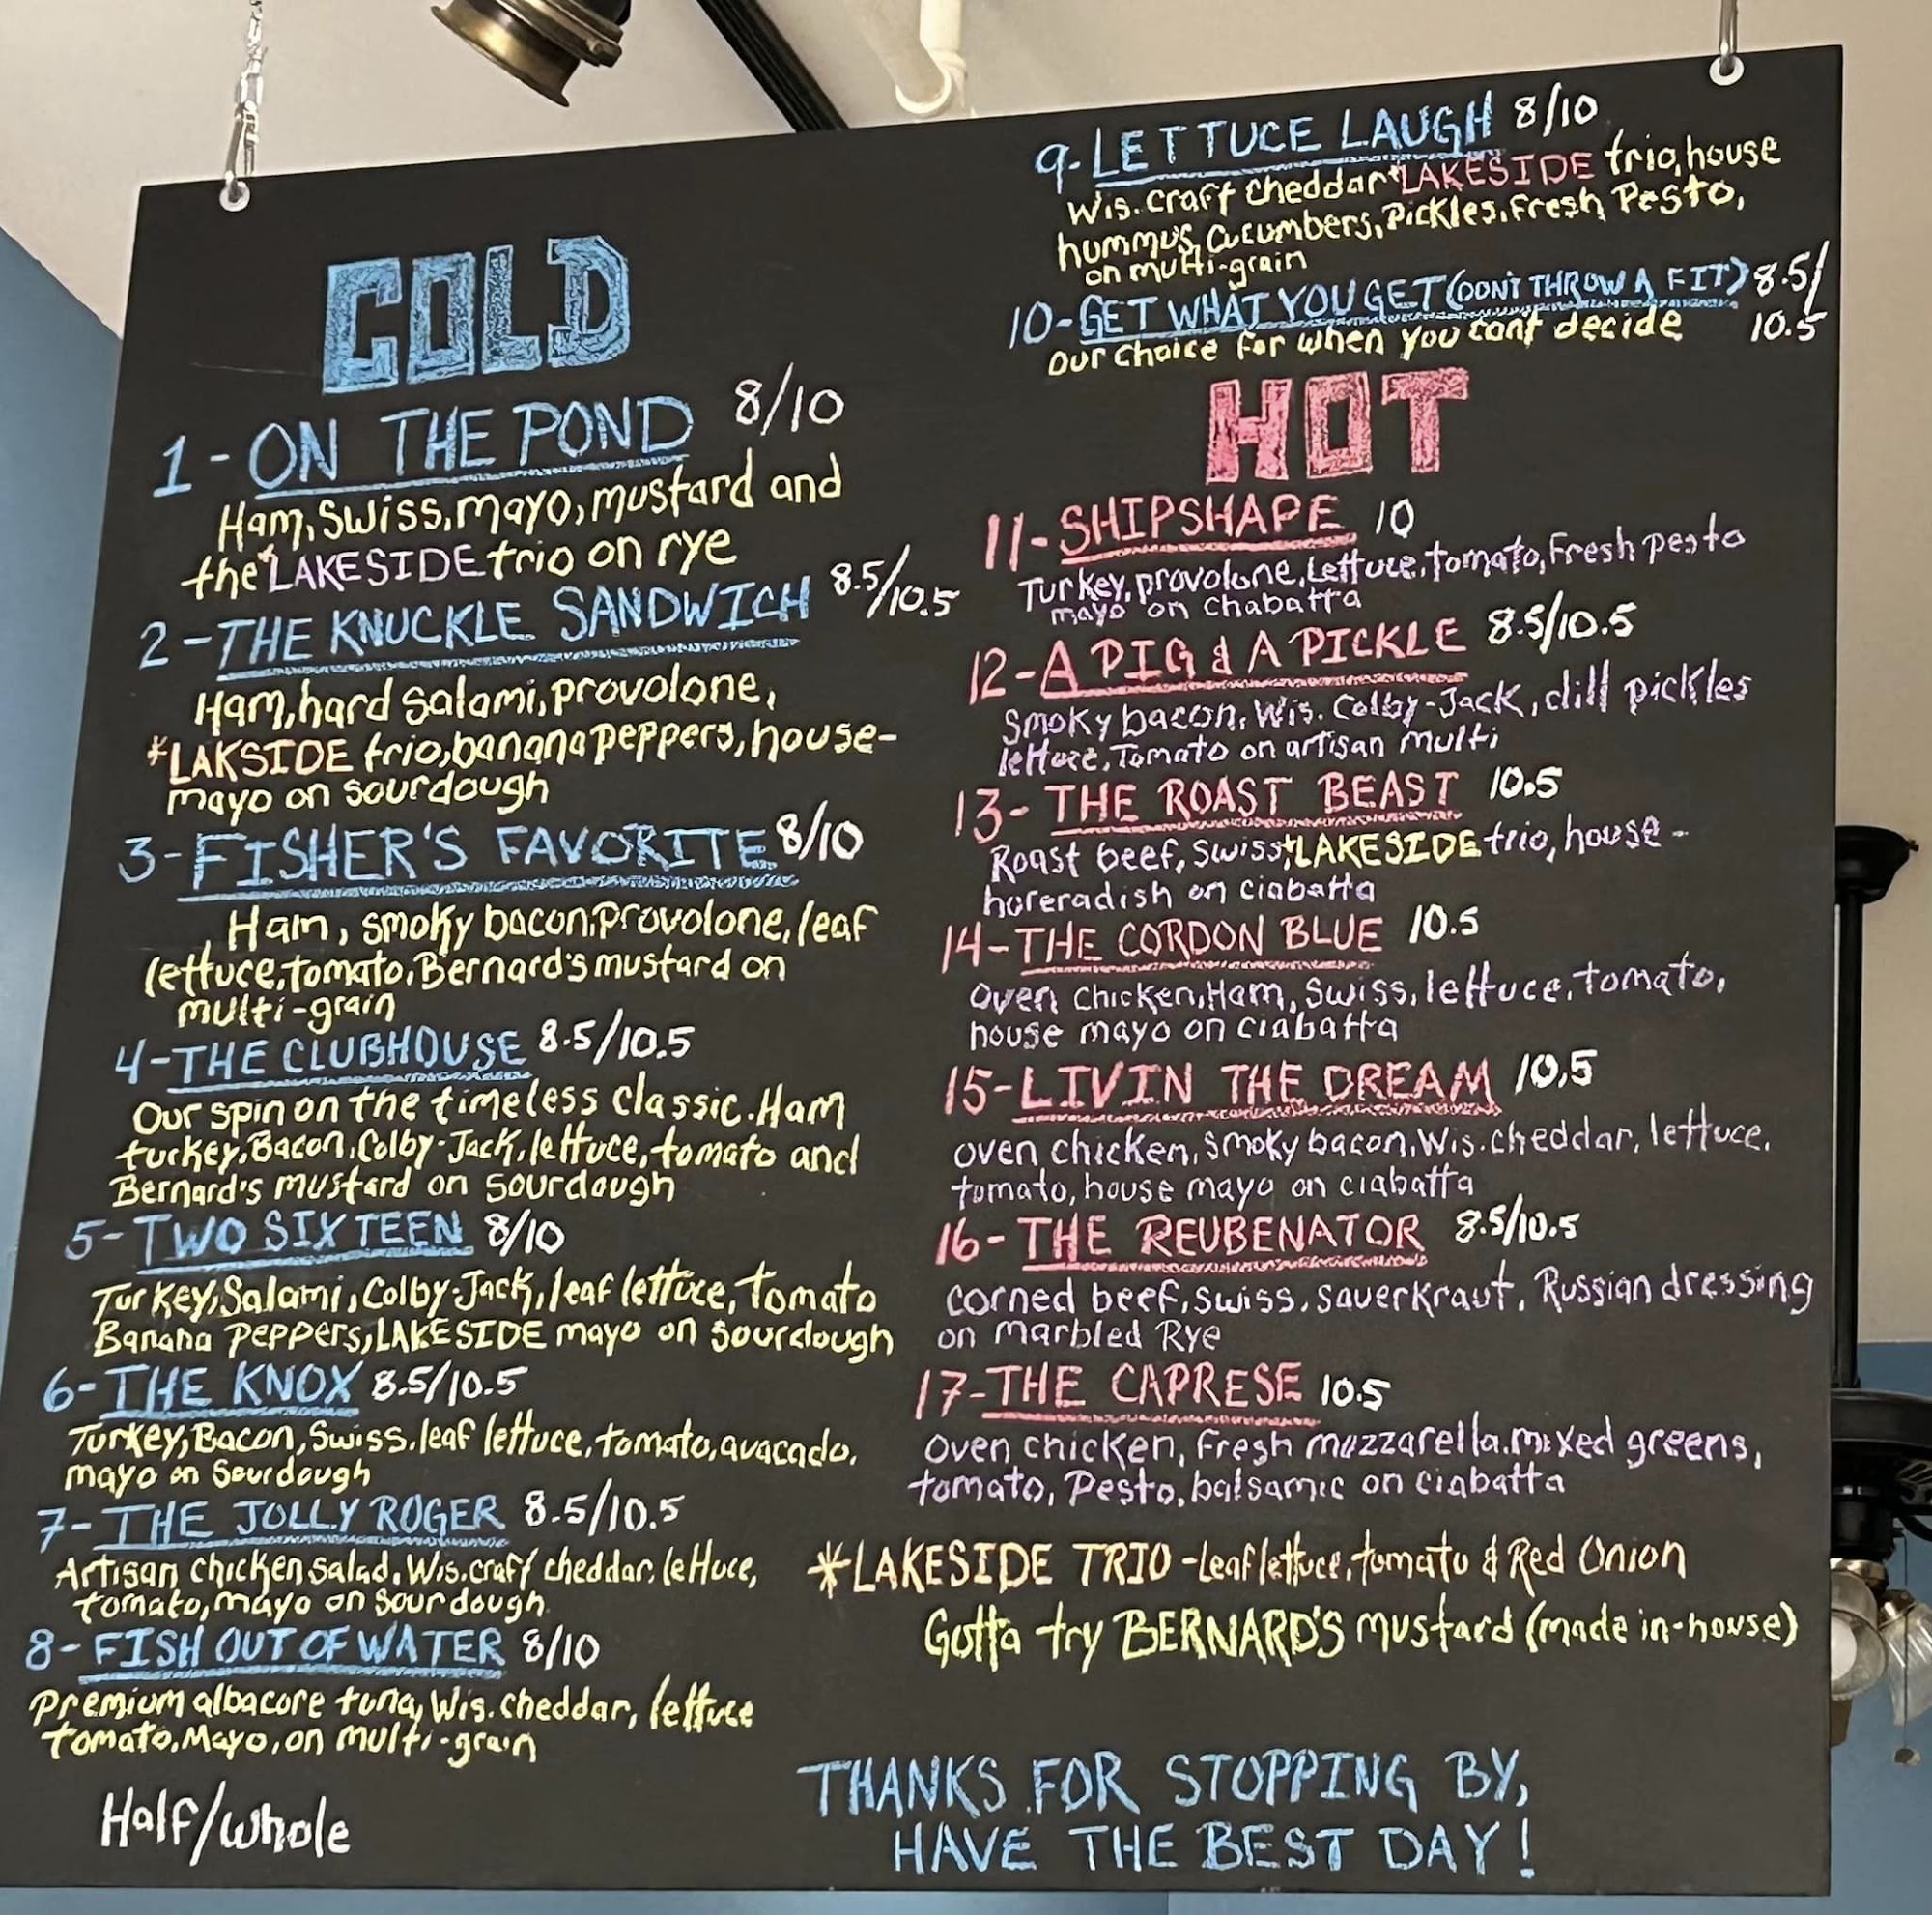 COLD
1-ON THE POND 8/10
Ham, Swiss, mayo, mustard and
the *LAKESIDE trio on rye
2-THE KNUCKLE SANDWICH 8.5/10.5
Ham, hard salami, provolone,
*LAKSIDE trio, banana peppers, house-
mayo on sourdough
3-FISHER'S FAVORITE 8/10
Ham, smoky bacon, Provolone, leaf
lettuce, tomato, Bernard's mustard on
multi-grain
4-THE CLUBHOUSE 8.5/10.5
Our spin on the timeless classic. Ham
turkey, Bacon, Colby-Jack, lettuce, tomato and
Bernard's mustard on sourdough
5-TWO SIXTEEN 8/10
Turkey, Salami, Colby-Jack, leaf lettuce, tomato
Banana peppers, LAKESIDE mayo on sourdough
6-THE KNOX 8.5/10.5
Turkey, Bacon, Swiss, leaf lettuce, tomato, avacado,
mayo on Sourdough
7-THE JOLLY ROGER 8.5/10.5
Artisan chicken salad, Wis. craft cheddar, lettuce,
tomato, mayo on sourdough.
8-FISH OUT OF WATER 8/10
Premium albacore tuna, Wis. cheddar, lettuce
tomato, Mayo, on multi-grain
Half/whole
9-LETTUCE LAUGH 8/10
Wis. craft cheddar *LAKESIDE trio, house
hummus, cucumbers, Pickles, Fresh Pesto,
on multi-grain
10-GET WHAT YOU GET (DON'T THROW A FIT) 8.5/
10.5
our choice for when you cant decide
HOT
11-SHIPSHAPE 10
Turkey, provolone, Lettuce, tomato, Fresh pesto
mayo on chabatta
12-A PIG & A PICKLE 8.5/10.5
Smoky bacon, Wis. Colby-Jack, dill pickles
lettuce, Tomato on artisan multi
13-THE ROAST BEAST 10.5
Roast beef, Swiss, *LAKESIDE trio, house-
horeradish on ciabatta
14-THE CORDON BLUE 10.5
Oven chicken, Ham, Swiss, lettuce, tomato,
house mayo on ciabatta
15-LIVIN THE DREAM 10.5
oven chicken, smoky bacon, Wis. cheddar, lettuce,
tomato, house mayo on ciabatta
16-THE REUBENATOR 8.5/10.5
corned beef, swiss, sauerkraut, Russian dressing
on marbled Rye
17-THE CAPRESE 10.5
Oven chicken, Fresh mozzarella, mixed greens,
tomato, Pesto, balsamic on ciabatta
*LAKESIDE TRIO - Leaf lettuce, tomato & Red Onion
Gotta try BERNARD'S mustard (made in-house)
THANKS FOR STOPPING BY,
HAVE THE BEST DAY!